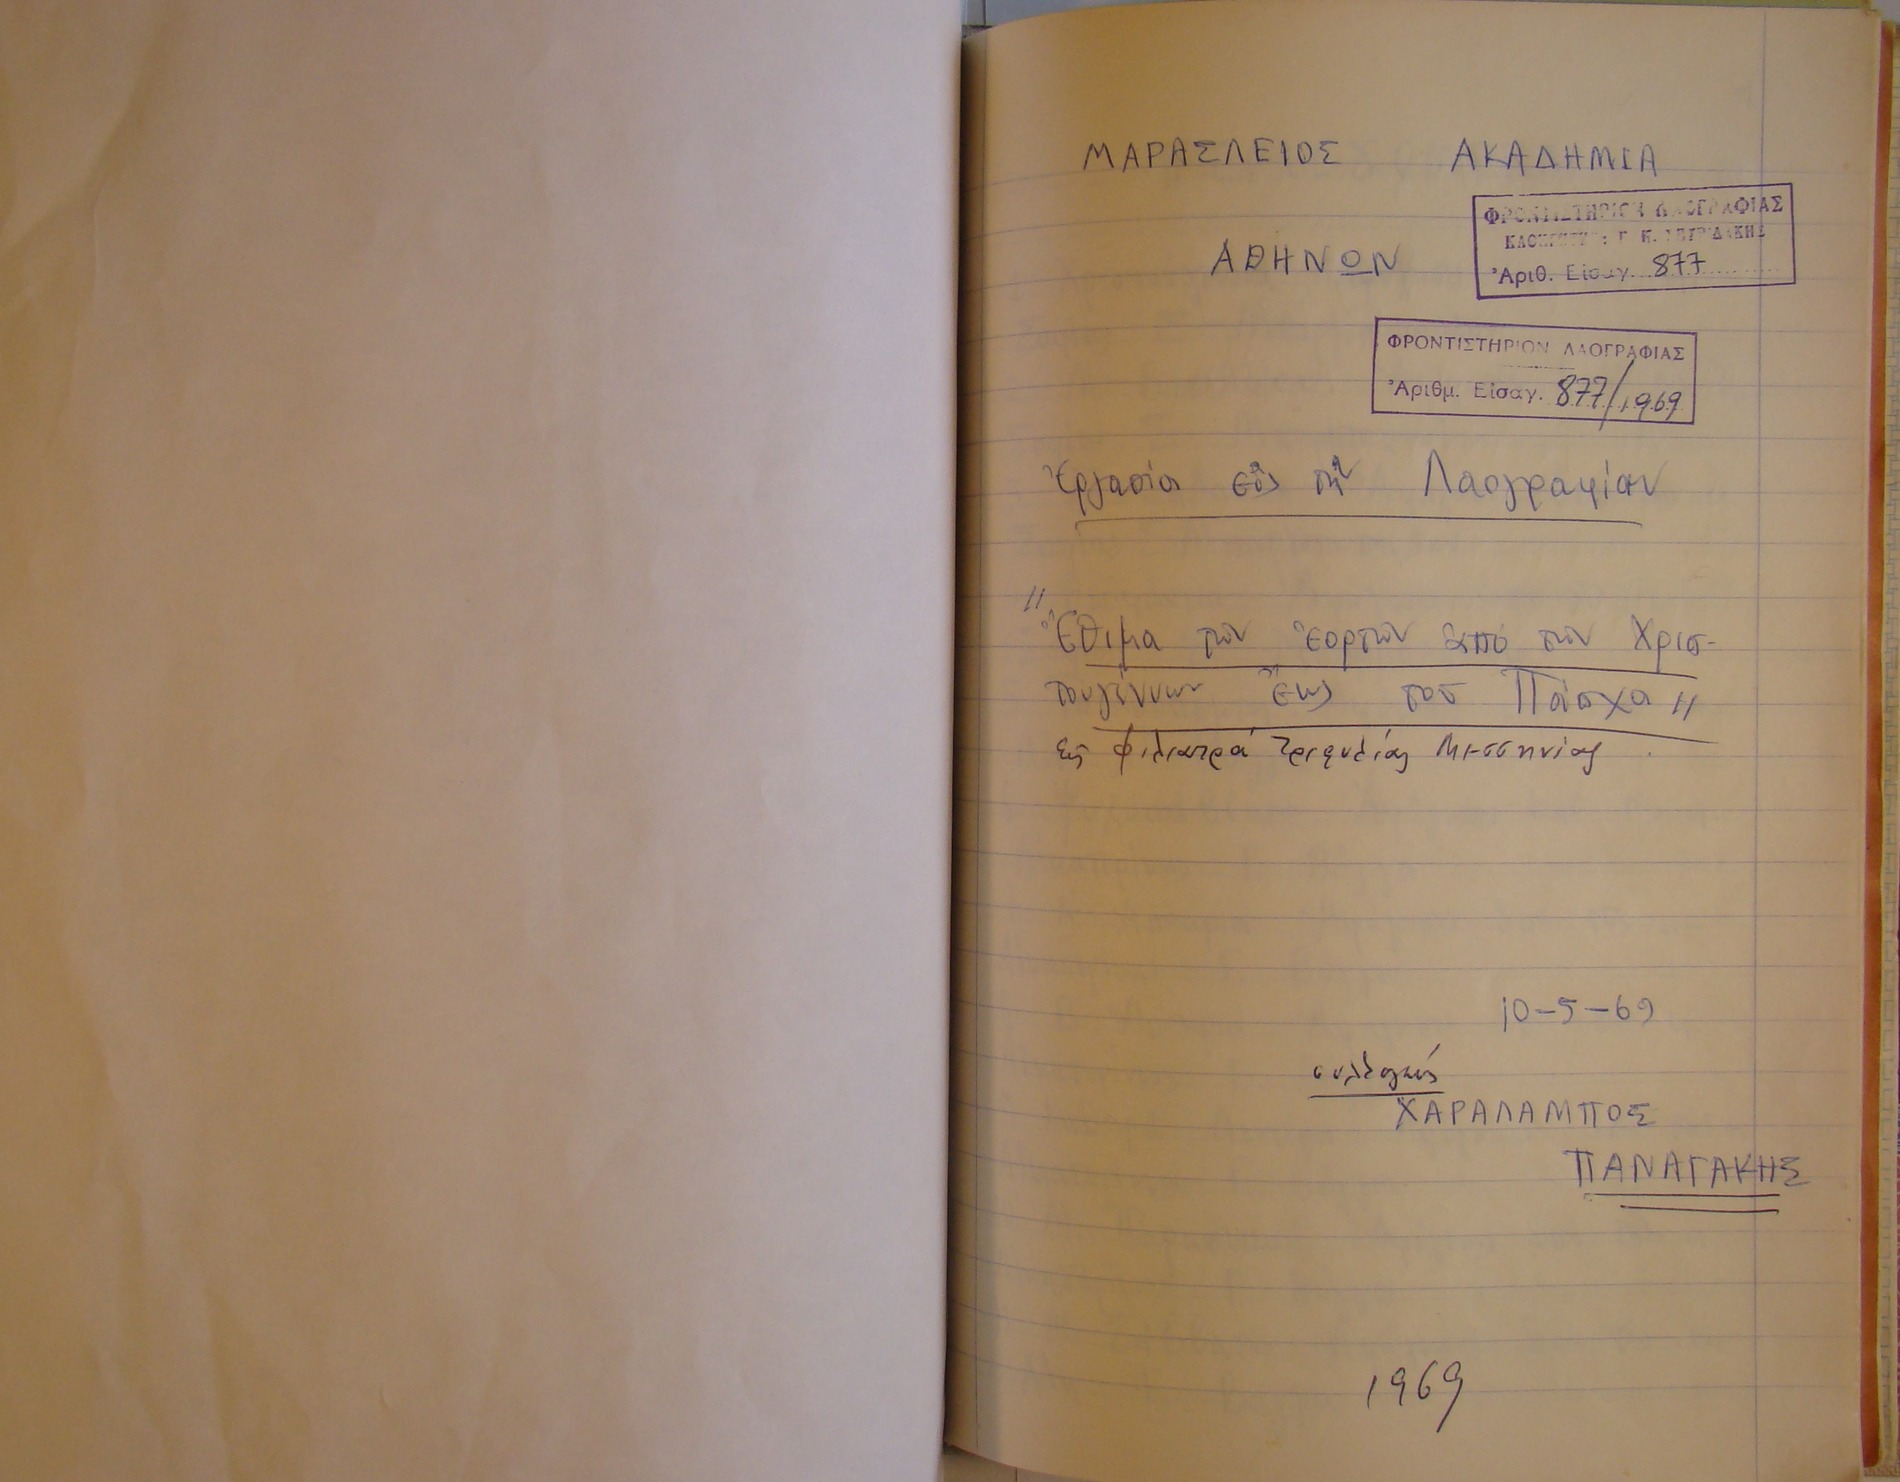 ΜΑΡΑΣΛΕΙΟΣ ΑΚΑΔΗΜΙΑ
ΑΘΗΝΩΝ
ΦΡΟΝΤΙΣΤΗΡΙΟΝ ΛΑΟΓΡΑΦΙΑΣ
Γ. Κ. ΣΠΥΡΙΔΑΚΗΣ
Ἀριθ. Εἰσαγ. 877
ΦΡΟΝΤΙΣΤΗΡΙΟΝ ΛΑΟΓΡΑΦΙΑΣ
Ἀριθμ. Εἰσαγ. 877/1969
Ἐργασία εἰς τὴν Λαογραφίαν
"Ἔθιμα τῶν ἑορτῶν ἀπὸ τῶν Χρισ-
τουγέννων ἕως τοῦ Πάσχα"
εἰς Φιλιατρά Τριφυλίας Μεσσηνίας.
10-5-69
συλλογεύς
ΧΑΡΑΛΑΜΠΟΣ
ΠΑΝΑΓΑΚΗΣ
1969